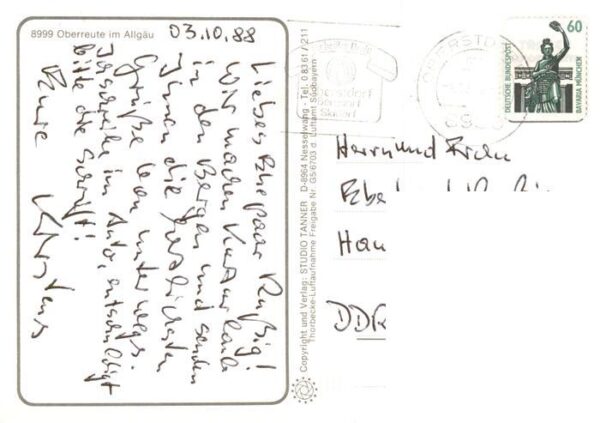 8999 Oberreute im Allgäu
03.10.88
Liebes Ehepaar Rußig!
Wir machen Kurzurlaub
in den Bergen und senden
Ihnen die herzlichsten
Grüße von unterwegs.
Ich schreibe im Auto, entschuldigt
bitte die Schrift!
Eure Karstens
Copyright und Verlag: STUDIO TANNER D-8964 Nesselwang - Tel. 0 83 61 / 211
Thorbecke-Luftaufnahme Freigabe Nr. G5/6703 d. Luftamt Südbayern
OBERSTD
60
DEUTSCHE BUNDESPOST
BAVARIA MÜNCHEN
Herrn und Frau
Han
DDR